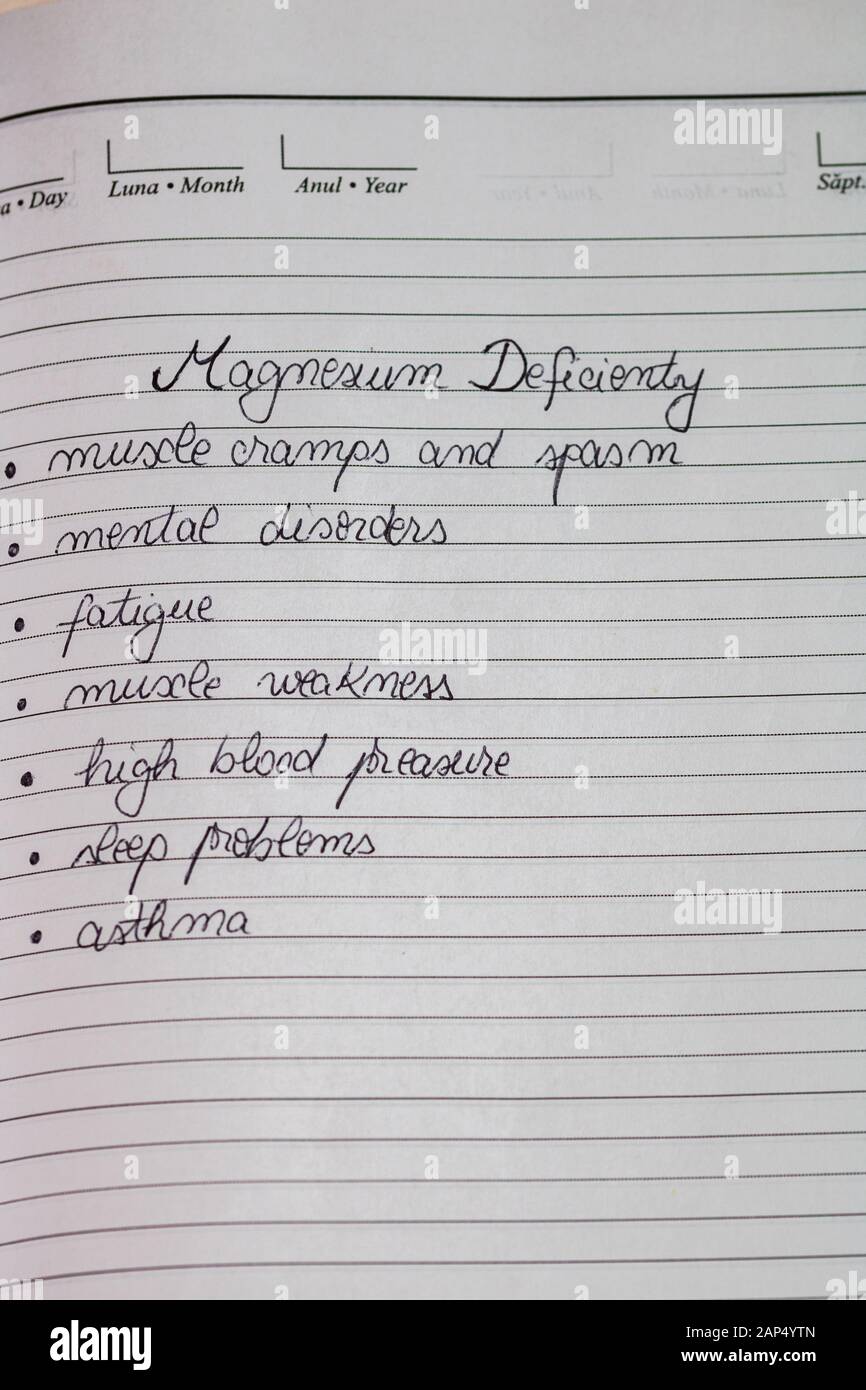 a • Day
Luna • Month
Anul • Year
Săpt.
Magnesium Deficienty
• muscle cramps and spasm
• mental disorders
• fatigue
• muscle weakness
• high blood preasure
• sleep problems
• asthma
alamy
Image ID: 2AP4YTN
www.alamy.com